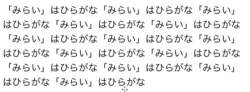 「みらい」はひらがな「みらい」はひらがな「みらい」
はひらがな「みらい」はひらがな「みらい」はひらがな
「みらい」はひらがな「みらい」はひらがな「みらい」
はひらがな「みらい」はひらがな「みらい」はひらがな
「みらい」はひらがな「みらい」はひらがな「みらい」
はひらがな「みらい」はひらがな